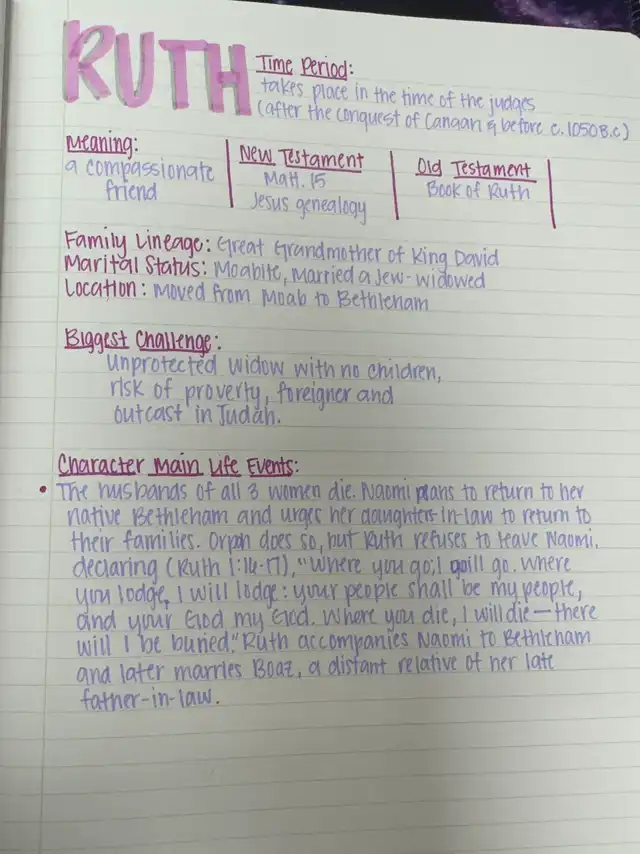 RUTH
Time Period:
takes place in the time of the judges
(after the conquest of Canaan & before c. 1050B.C)
Meaning:
a compassionate
friend
New Testament
Matt. 15
Jesus genealogy
Old Testament
Book of Ruth
Family Lineage: Great Grandmother of King David
Marital Status: Moabite, Married a Jew-widowed
Location: Moved from Moab to Bethleham
Biggest Challenge:
unprotected widow with no children,
risk of proverty, foreigner and
outcast in Judah.
Character Main Life Events:
• The husbands of all 3 women die. Naomi plans to return to her
native Bethleham and urges her daughters-in-law to return to
their families. Orpah does so, but Ruth refuses to leave Naomi,
declaring (Ruth 1:16-17), "Where you go, I will go. Where
you lodge, I will lodge: your people shall be my people,
and your God my God. Where you die, I will die—there
will I be buried." Ruth accompanies Naomi to Bethleham
and later marries Boaz, a distant relative of her late
father-in-law.